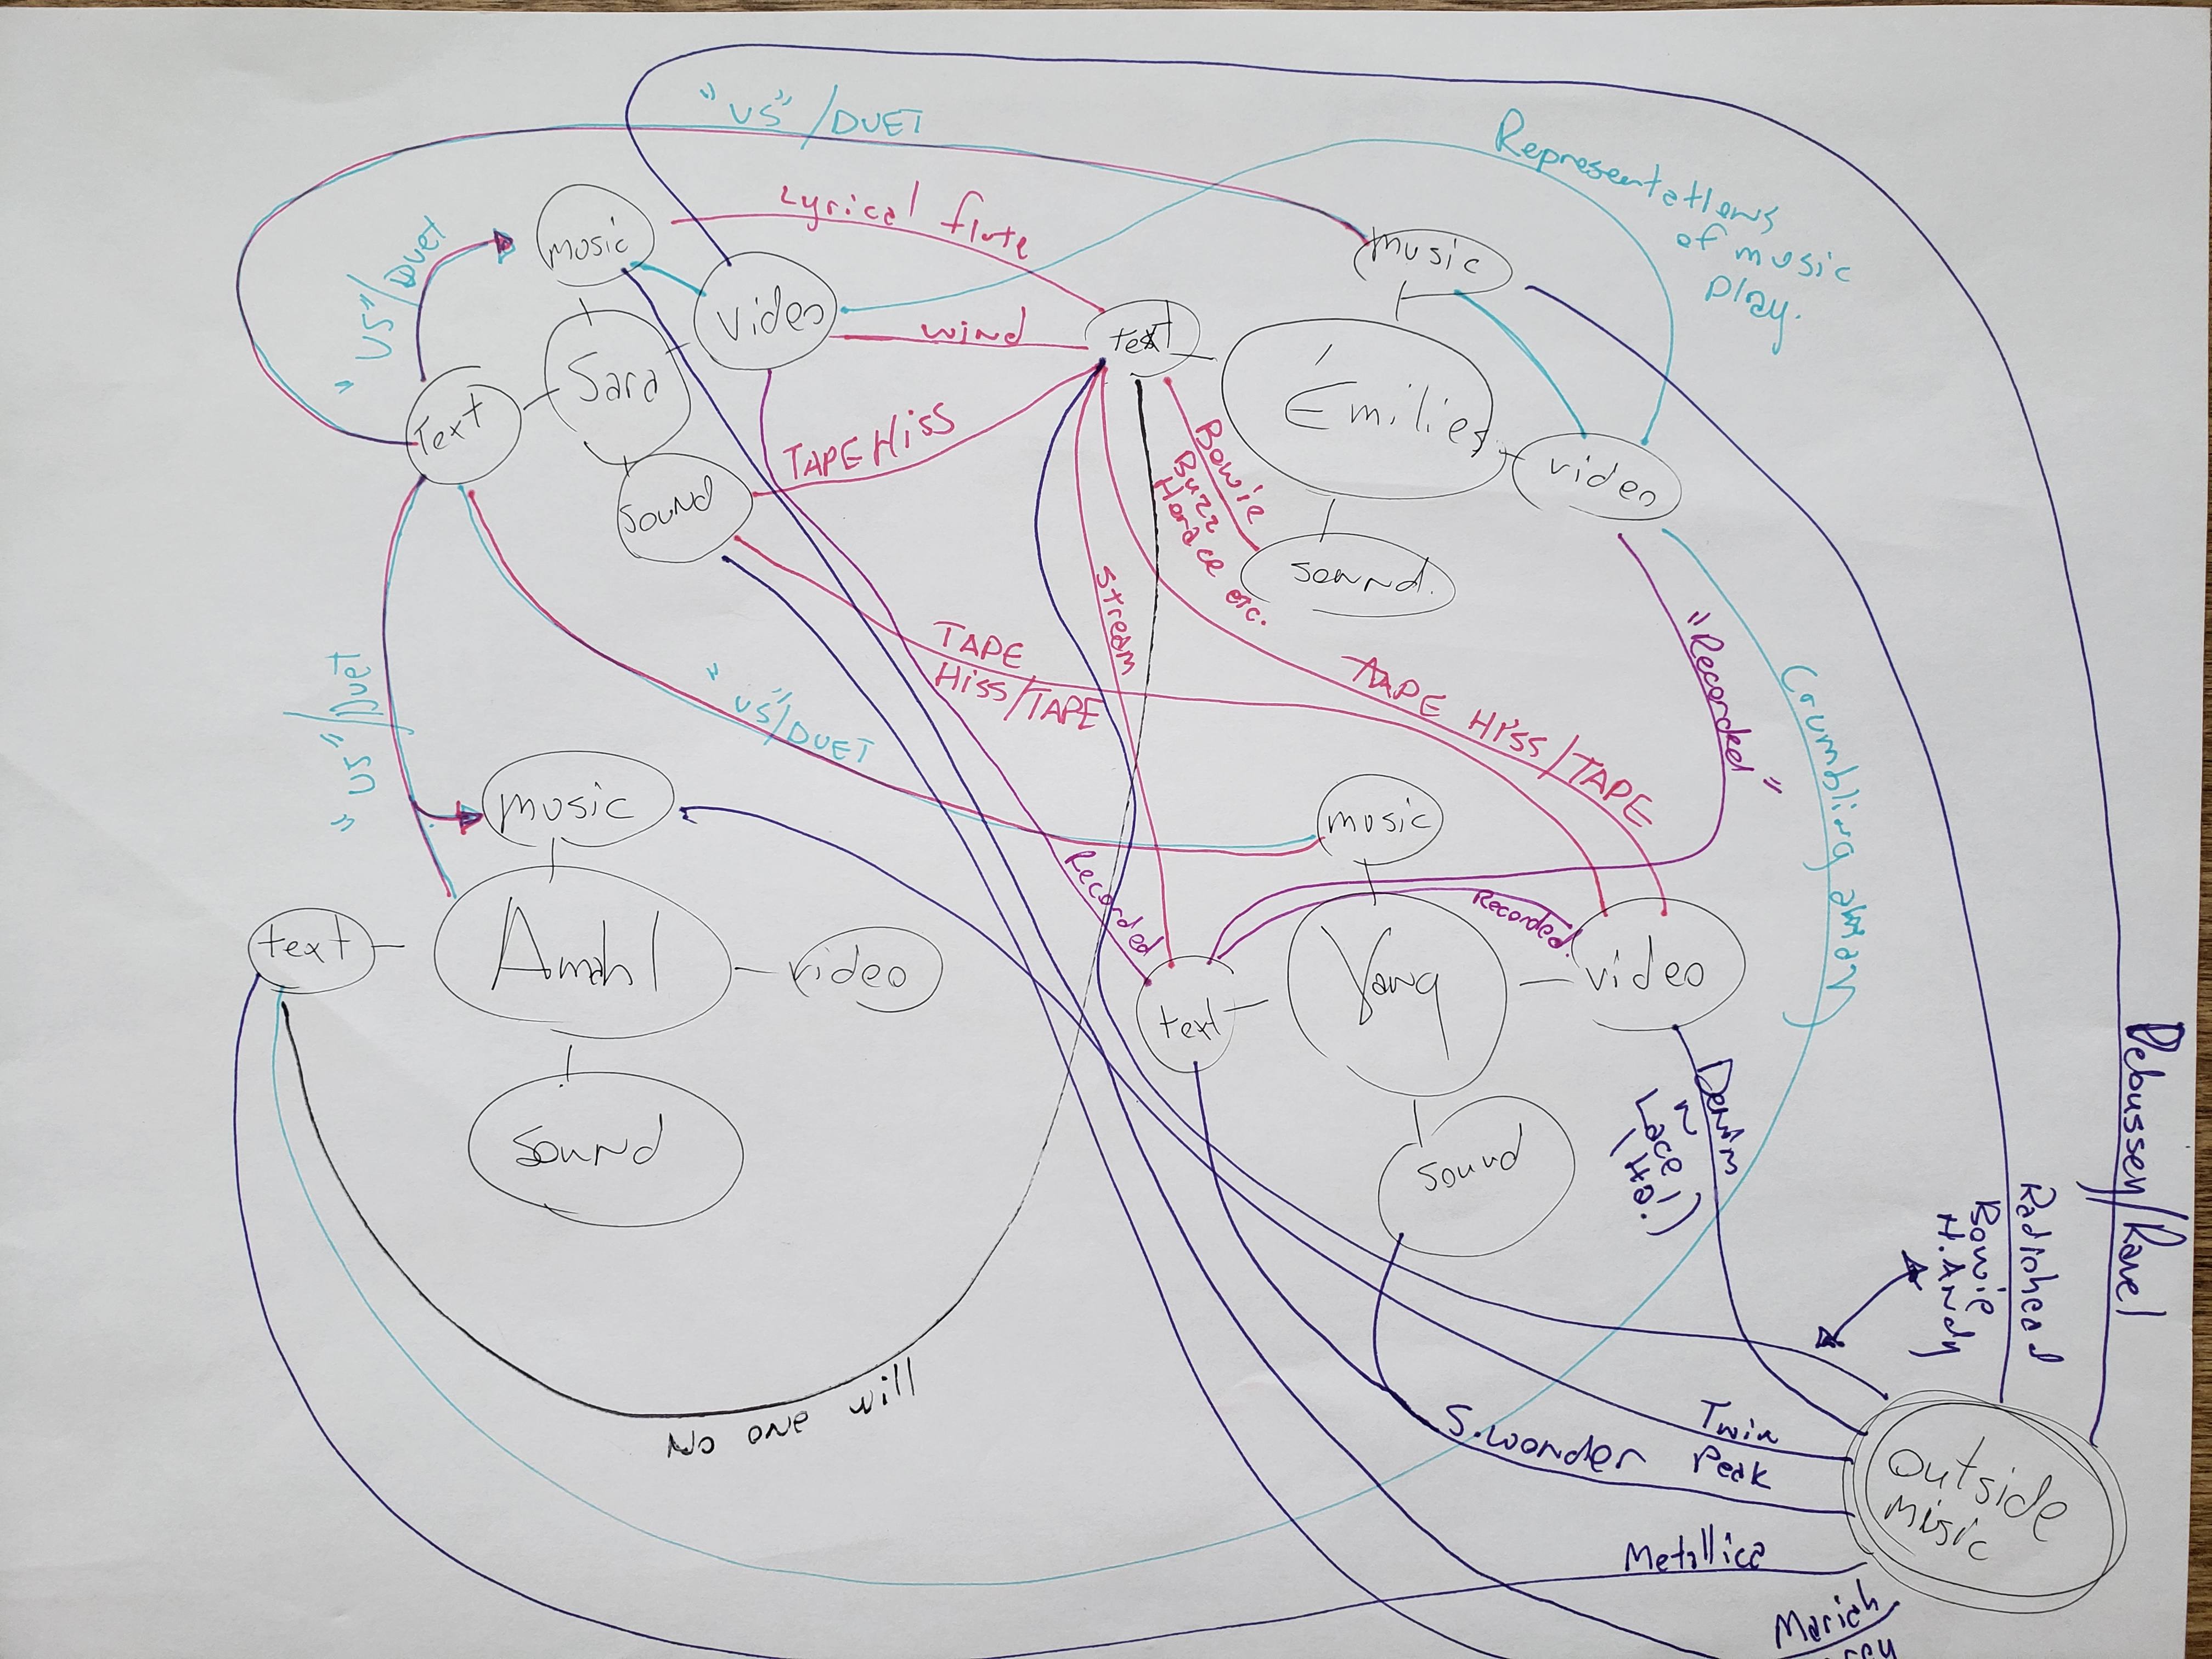 "US"/DUET
Representations
of music
play.
Lyrical flute
"US"/Duet
music
music
video
wind
text
Sara
Émilie
Text
TAPE Hiss
video
Bowie
Buzz
Horace etc.
sound
sound.
stream
TAPE
Hiss/TAPE
TAPE Hiss/TAPE
"Recorded"
Crumbling away
"US"/Duet
"US"/DUET
music
music
Recorded
Recorded
text
Amahl
video
text
Yang
video
Denim
N
Lace!
(Ha.)
sound
sound
Debussey/Ravel
Radiohead
Bowie
H. Andy
No one will
Twin
Peak
S. wonder
outside
music
Metallica
Mariah